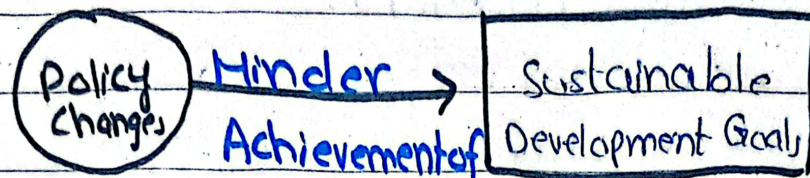 Policy
Changes
Hinder
Achievement of
Sustainable
Development Goals